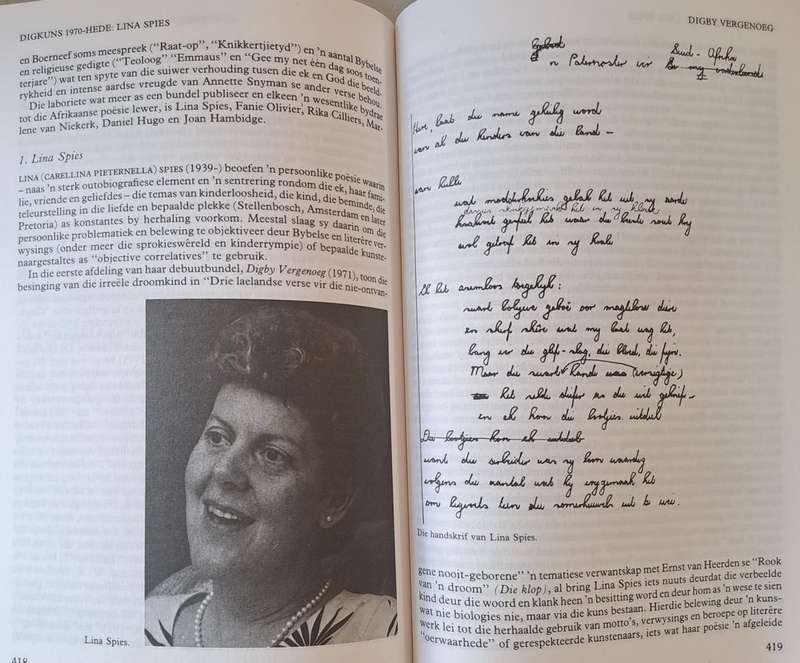 DIGKUNS 1970-HEDE: LINA SPIES
en Boerneef soms meespreek (“Raat-op”, “Knikkertjietyd”) en ’n aantal Bybelse
en religieuse gedigte (“Teoloog” “Emmaus” en “Gee my net één dag soos toen,
terjare”) wat ten spyte van die suiwer verhouding tussen die ek en God die beeld-
rykheid en intense aardse vreugde van Annette Snyman se ander verse behou.
Die laboriete wat meer as een bundel publiseer en elkeen ’n wesentlike bydrae
tot die Afrikaanse poësie lewer, is Lina Spies, Fanie Olivier, Rika Cilliers, Mar-
lene van Niekerk, Daniel Hugo en Joan Hambidge.
1. Lina Spies
LINA (CARELLINA PIETERNELLA) SPIES (1939-) beoefen ’n persoonlike poësie waarin
– naas ’n sterk outobiografiese element en ’n sentrering rondom die ek, haar fami-
lie, vriende en geliefdes – die temas van kinderloosheid, die kind, die beminde, die
teleurstelling in die liefde en bepaalde plekke (Stellenbosch, Amsterdam en later
Pretoria) as konstantes by herhaling voorkom. Meestal slaag sy daarin om die
persoonlike problematiek en belewing te objektiveer deur Bybelse en literêre ver-
wysings (onder meer die sprokieswêreld en kinderrympie) of bepaalde kunste-
naargestaltes as “objective correlatives” te gebruik.
In die eerste afdeling van haar debuutbundel, Digby Vergenoeg (1971), toon die
besinging van die irreële droomkind in “Drie laelandse verse vir die nie-ontvan-
Lina Spies.
418
DIGBY VERGENOEG
’n Paternoster vir Suid-Afrika
Here, laat die name geheilig word
van al die kinders van die land –
van hulle
wat modderkoekies gebak het uit sy aarde
Ek het asemloos toegekyk:
swart bolywe geboë oor
en skerp skêre wat my laat wag het,
bang vir die glip-slag, die bloed, die pyn.
Maar die swart hande
en ek kon die lootjies uitdeel
want die arbeider was sy loon waardig
volgens die aantal wat hy
om
Die handskrif van Lina Spies.
gene nooit-geborene” ’n tematiese verwantskap met Ernst van Heerden se “Rook
van ’n droom” (Die klop), al bring Lina Spies iets nuuts deurdat die verbeelde
kind deur die woord en klank heen ’n besitting word en deur hom as ’n wese te sien
wat nie biologies nie, maar via die kuns bestaan. Hierdie belewing deur ’n kuns-
werk lei tot die herhaalde gebruik van motto’s, verwysings en beroepe op literêre
“oerwaarhede” of gerespekteerde kunstenaars, iets wat haar poësie ’n afgeleide
419